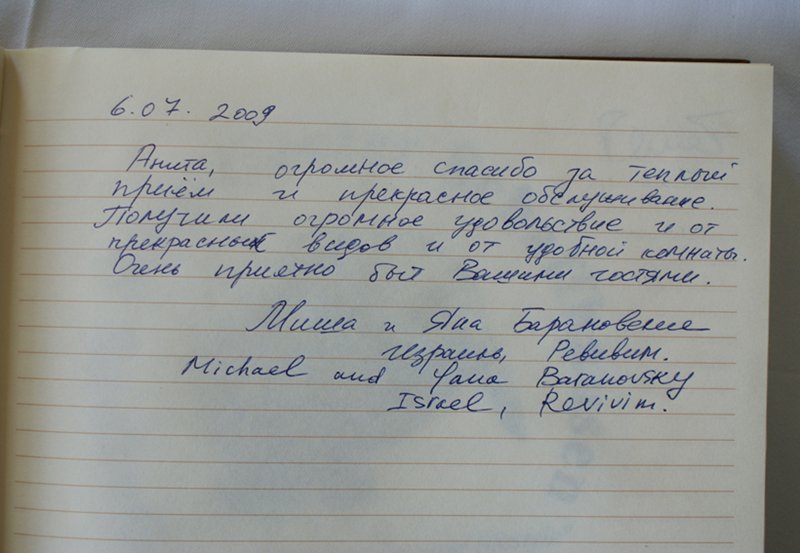 6.07. 2009
Анита, огромное спасибо за теплый
приём и прекрасное обслуживание.
Получили огромное удовольствие и от
прекрасных видов и от удобной комнаты.
Очень приятно быт Вашими гостями.
Миша и Яна Барановские
Израиль, Ревивим.
Michael and Yana Baranovsky
Israel, Revivim.